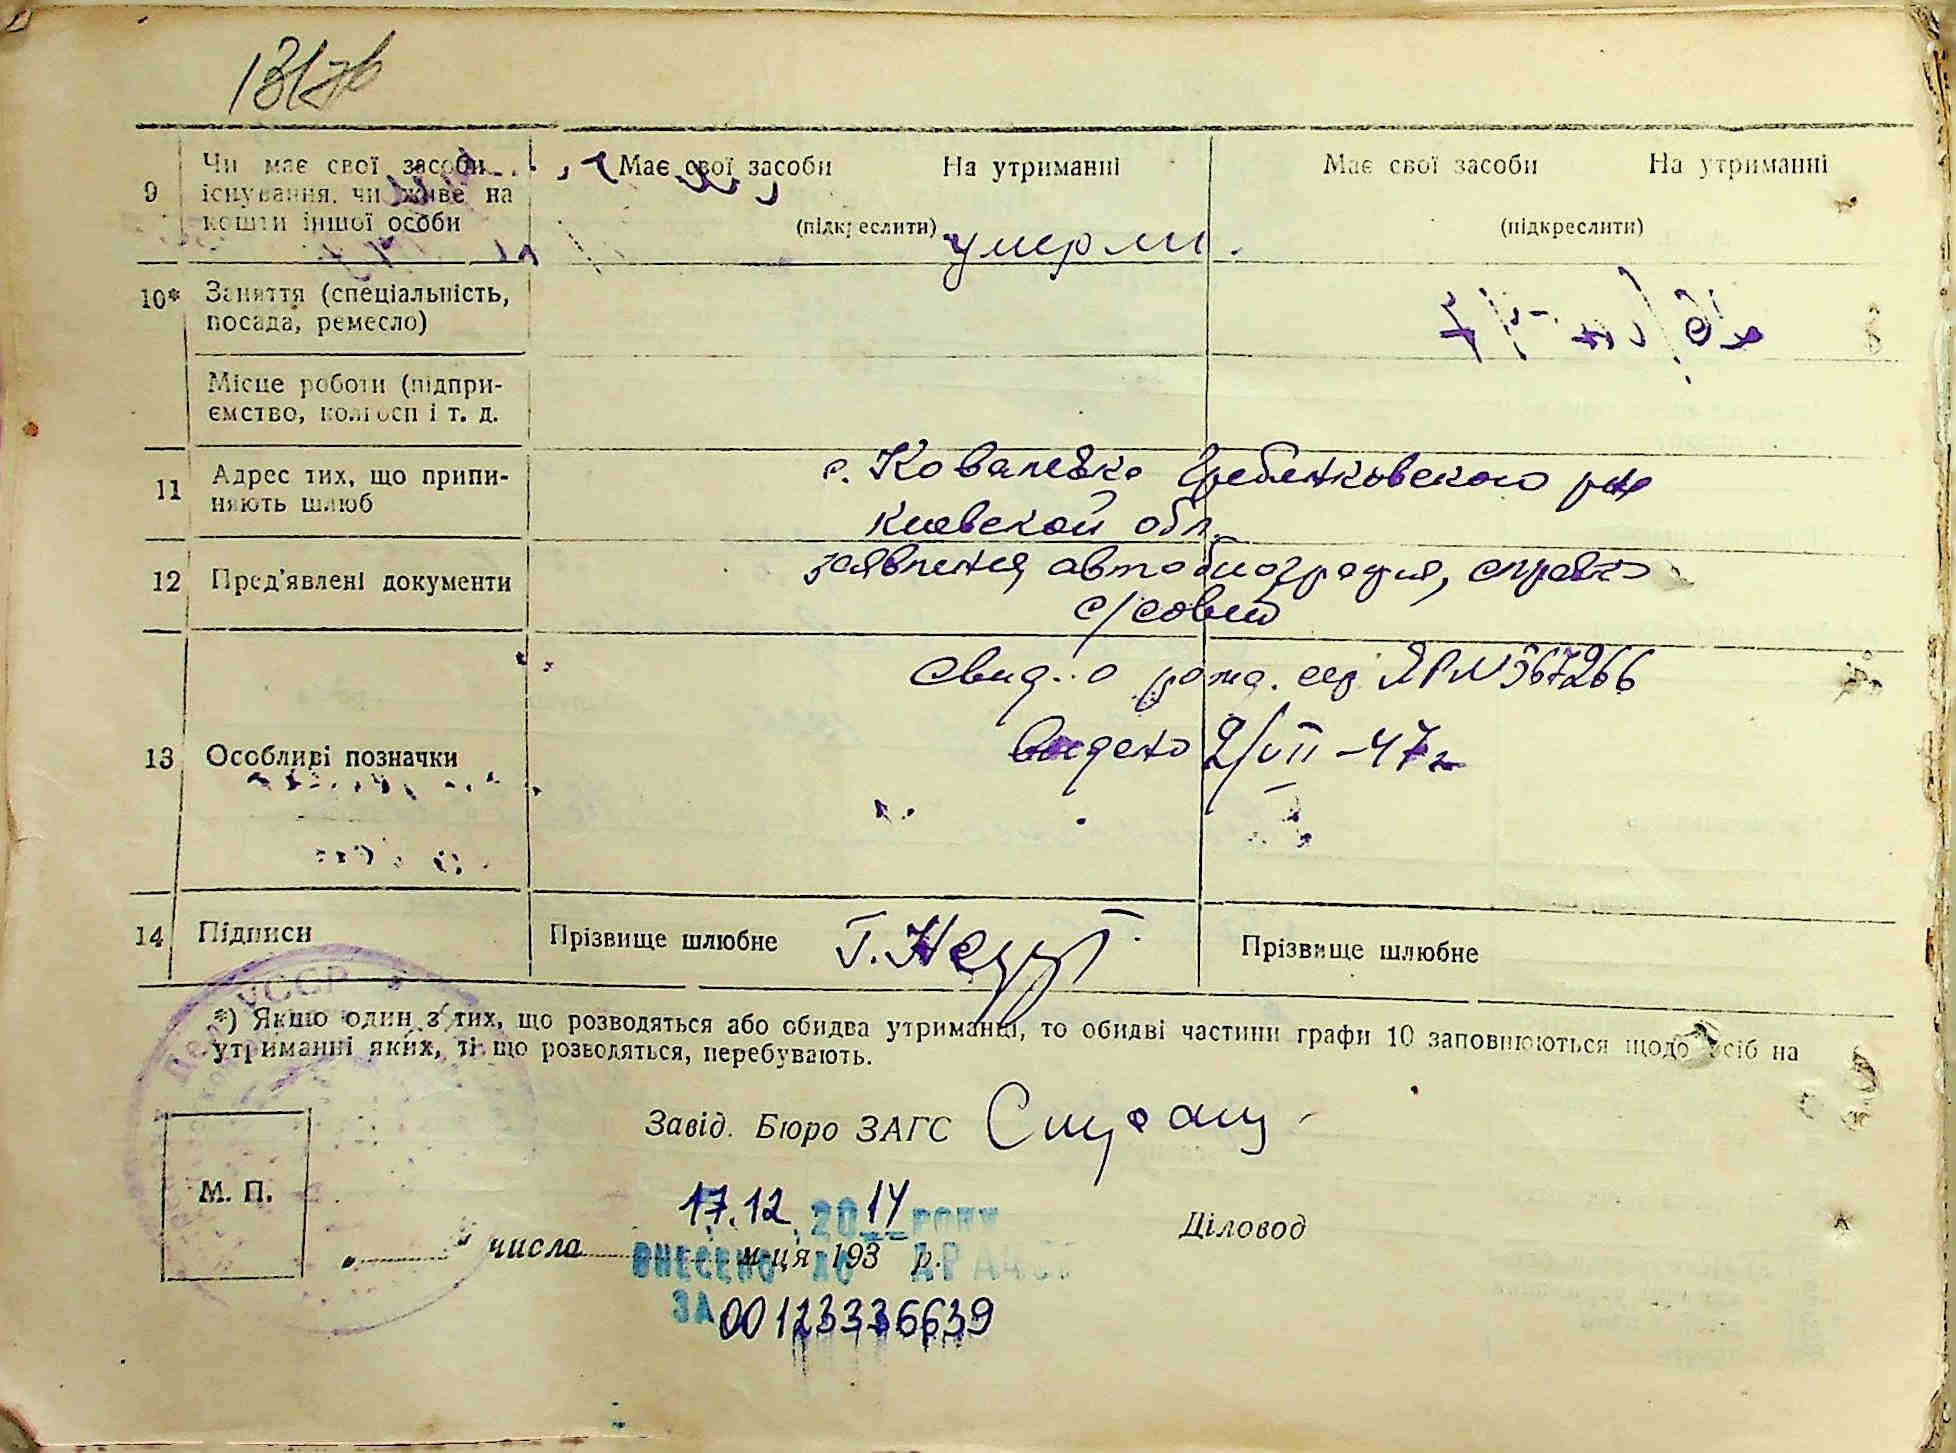 9 Чи має свої засоби існування, чи живе на кошти іншої особи
Має свої засоби На утриманні
(підкреслити)
Має свої засоби На утриманні
(підкреслити)
умерли.
10* Заняття (спеціальність, посада, ремесло)
Місце роботи (підприємство, колгосп і т. д.
11 Адрес тих, що припиняють шлюб
с. Ковалевка Гребенковского р-на
Киевской обл.
12 Пред'явлені документи
заявления, автобиография, справка
с/совета
13 Особливі позначки
свид. о рожд. сер ЯР N 567266
видено 2/VII-47г
14 Підписи
Прізвище шлюбне
Прізвище шлюбне
УССР
*) Якщо один з тих, що розводяться або обидва утриманці, то обидві частини графи 10 заповнюються щодо осіб на
утриманні яких, ті що розводяться, перебувають.
Завід. Бюро ЗАГС
М. П.
17.12.2014 РОКУ
Діловод
числа м-ця 193 р.
ВНЕСЕНО ДО ДРАЦС
ЗА 00123336639